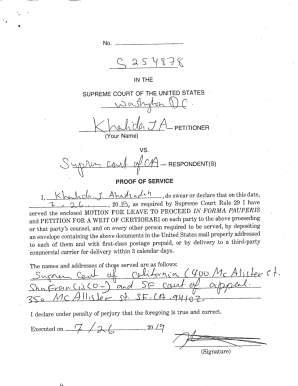 No.
S254878
IN THE
SUPREME COURT OF THE UNITED STATES
Washington DC
Khalida JA — PETITIONER
(Your Name)
VS.
Suprem court of CA — RESPONDENT(S)
PROOF OF SERVICE
I, Khalida J, do swear or declare that on this date,
7.26, 20, as required by Supreme Court Rule 29 I have
served the enclosed MOTION FOR LEAVE TO PROCEED IN FORMA PAUPERIS
and PETITION FOR A WRIT OF CERTIORARI on each party to the above proceeding
or that party's counsel, and on every other person required to be served, by depositing
an envelope containing the above documents in the United States mail properly addressed
to each of them and with first-class postage prepaid, or by delivery to a third-party
commercial carrier for delivery within 3 calendar days.
The names and addresses of those served are as follows:
Suprem Court of California (400 McAlister st.
) and SF court of appeal.
350 McAllister st. SF. CA. 94102.
I declare under penalty of perjury that the foregoing is true and correct.
Executed on 7/26, 2019
(Signature)